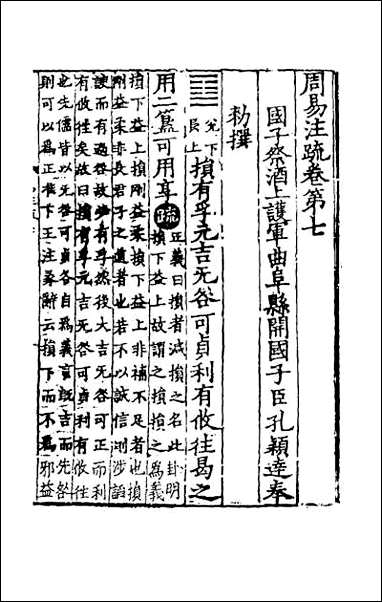 周易注疏卷第七
國子祭酒上護軍曲阜縣開國子臣孔穎達奉
勑撰
兌下艮上損有孚元吉无咎可貞利有攸往曷之
用二簋可用享疏正義曰損者減損之名此卦明
損下益上故謂之損損之為義
損下益上損剛益柔損下益上非補不足者也損
剛益柔非長君子之道者也若不以誠信則涉諂
諛而有過咎故必有孚然後大吉无咎可正而利
有攸往矣故曰損有孚元吉无咎可貞利有攸往
也先儒皆以无咎可貞各自為義言既吉而无咎
則可以為正准下王注彖辭云損下而不為邪益